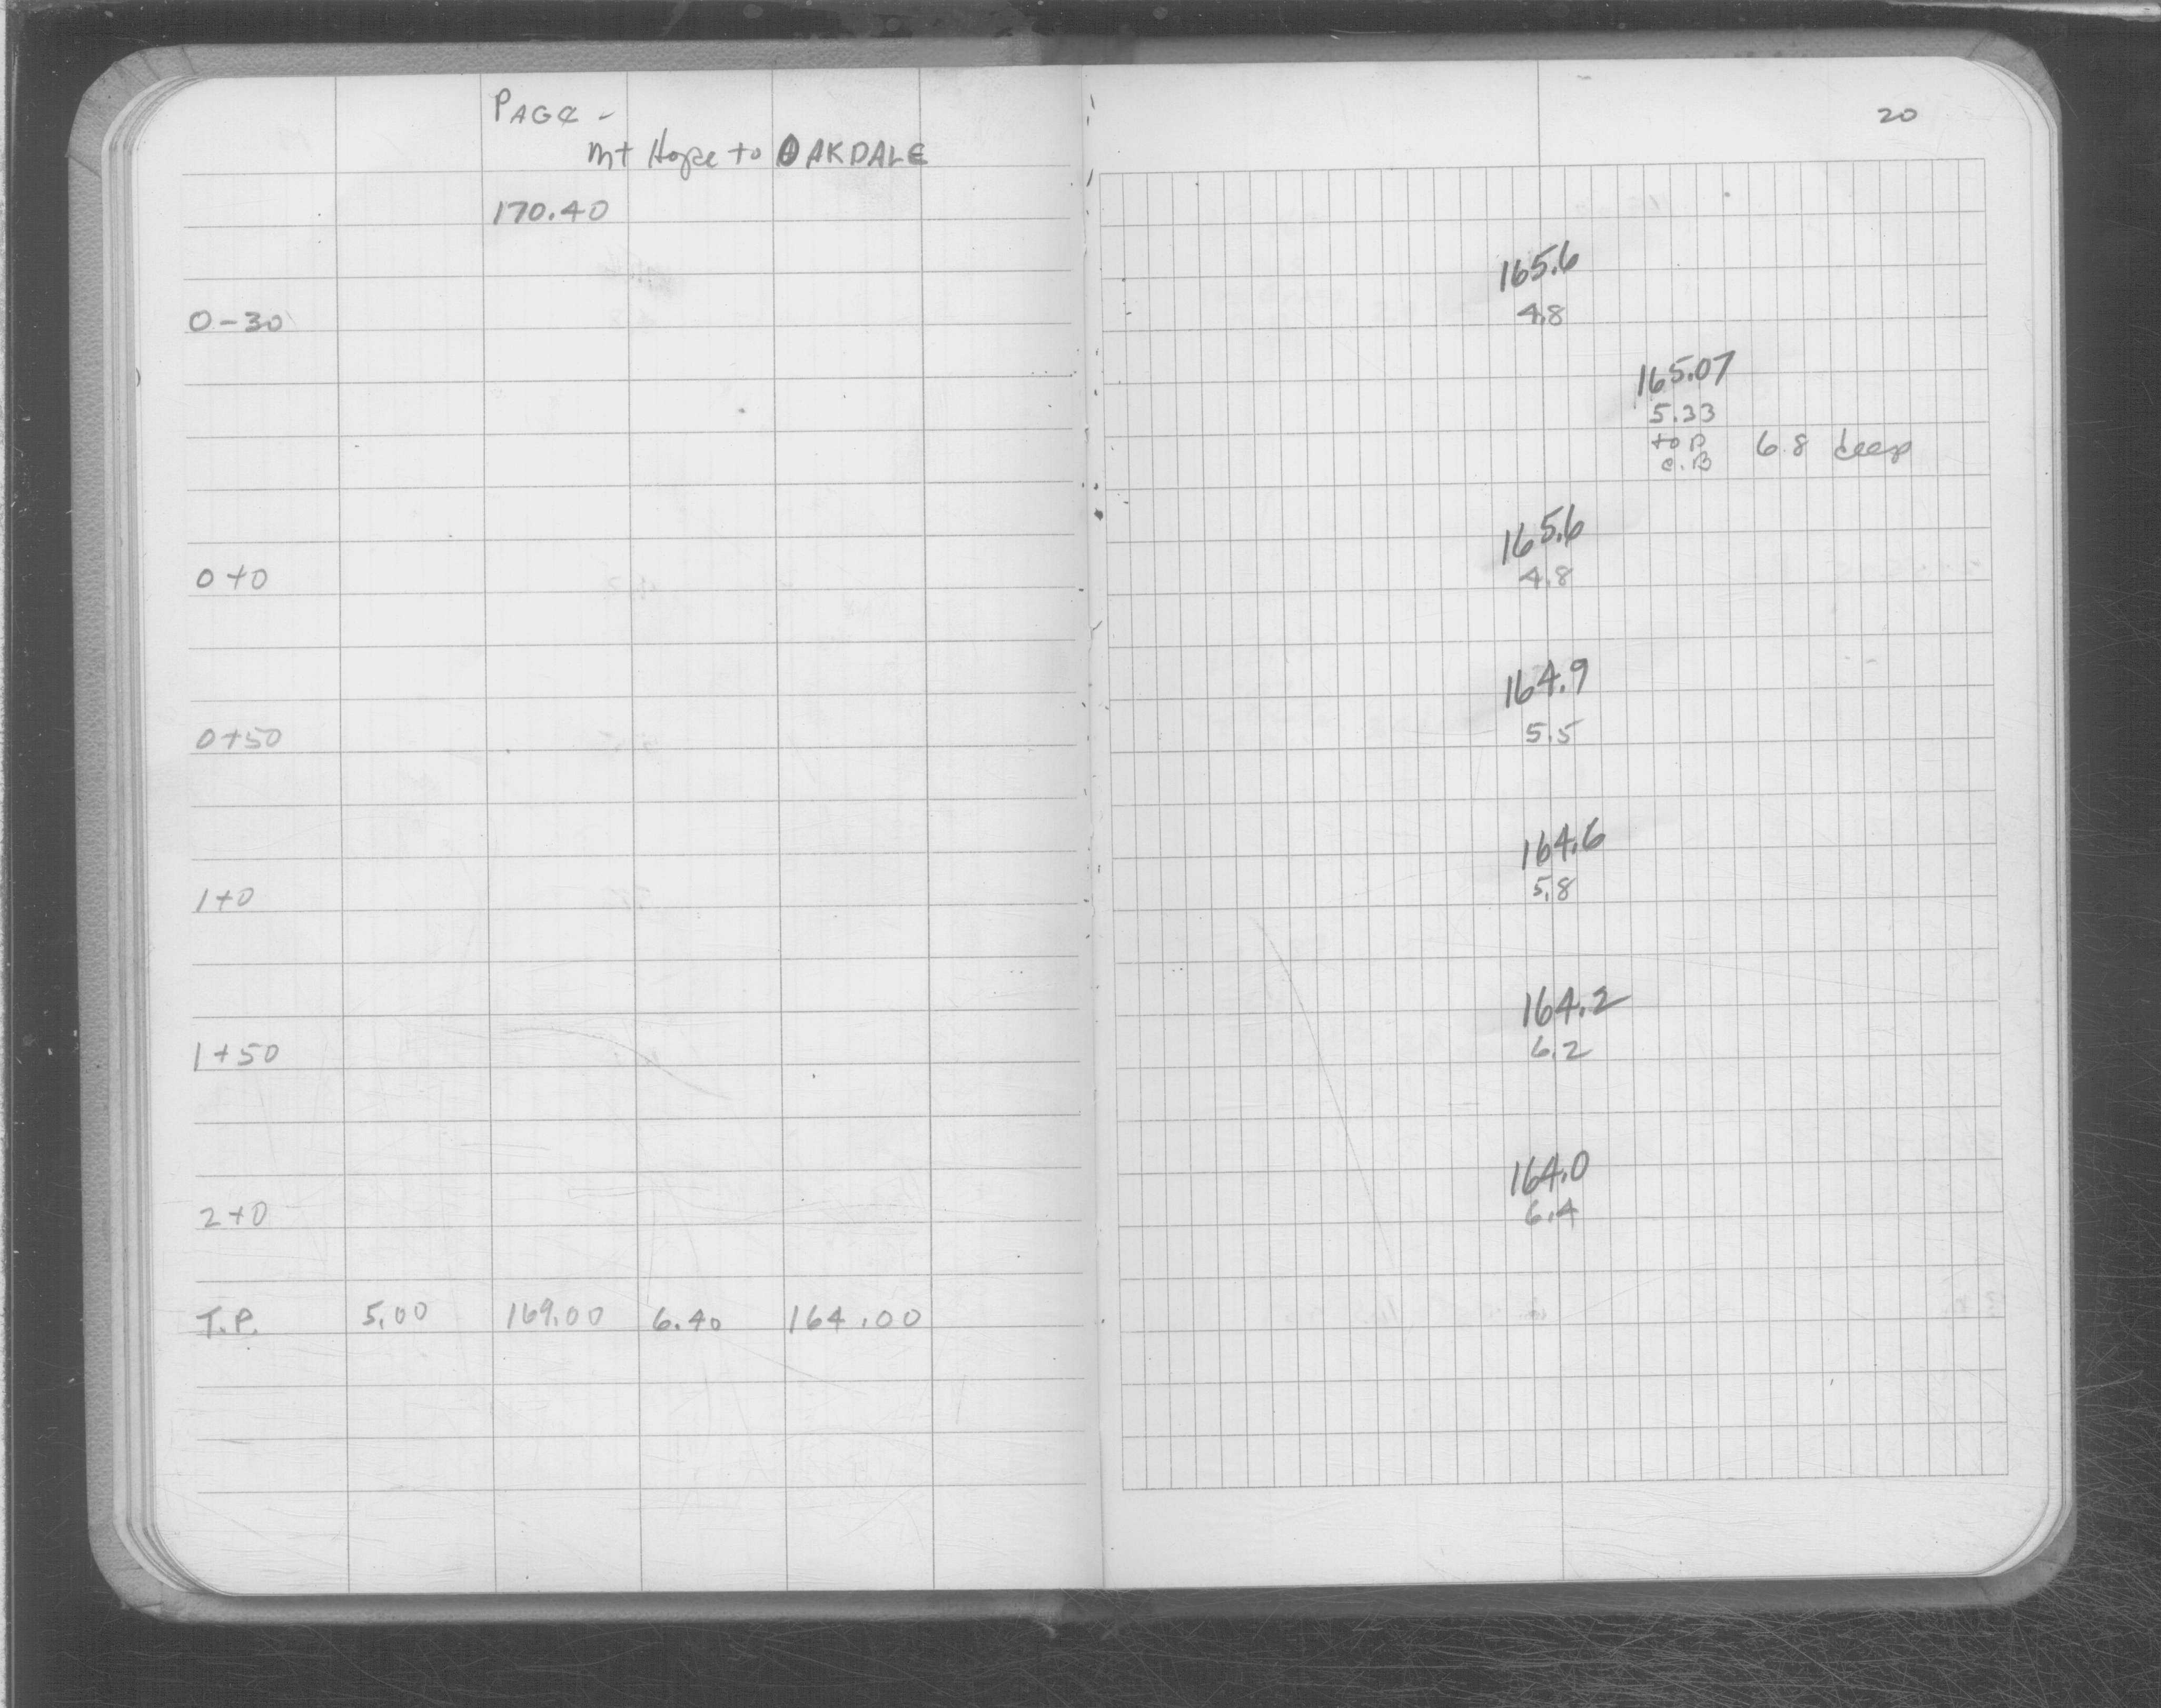 PAGE -
Mt Hope to OAKDALE
20
170.40
165.6
0-30 4.8
165.07
5.33
top 6.8 deep
C.B
165.6
0+0 4.8
164.9
0+50 5.5
164.6
1+0 5.8
164.2
1+50 6.2
164.0
2+0 6.4
T.P. 5.00 169.00 6.40 164.00